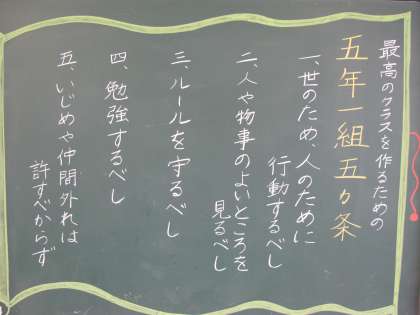 最高のクラスを作るための
五年一組五ヵ条
一、世のため、人のために
行動するべし
二、人や物事のよいところを
見るべし
三、ルールを守るべし
四、勉強するべし
五、いじめや仲間外れは
許すべからず